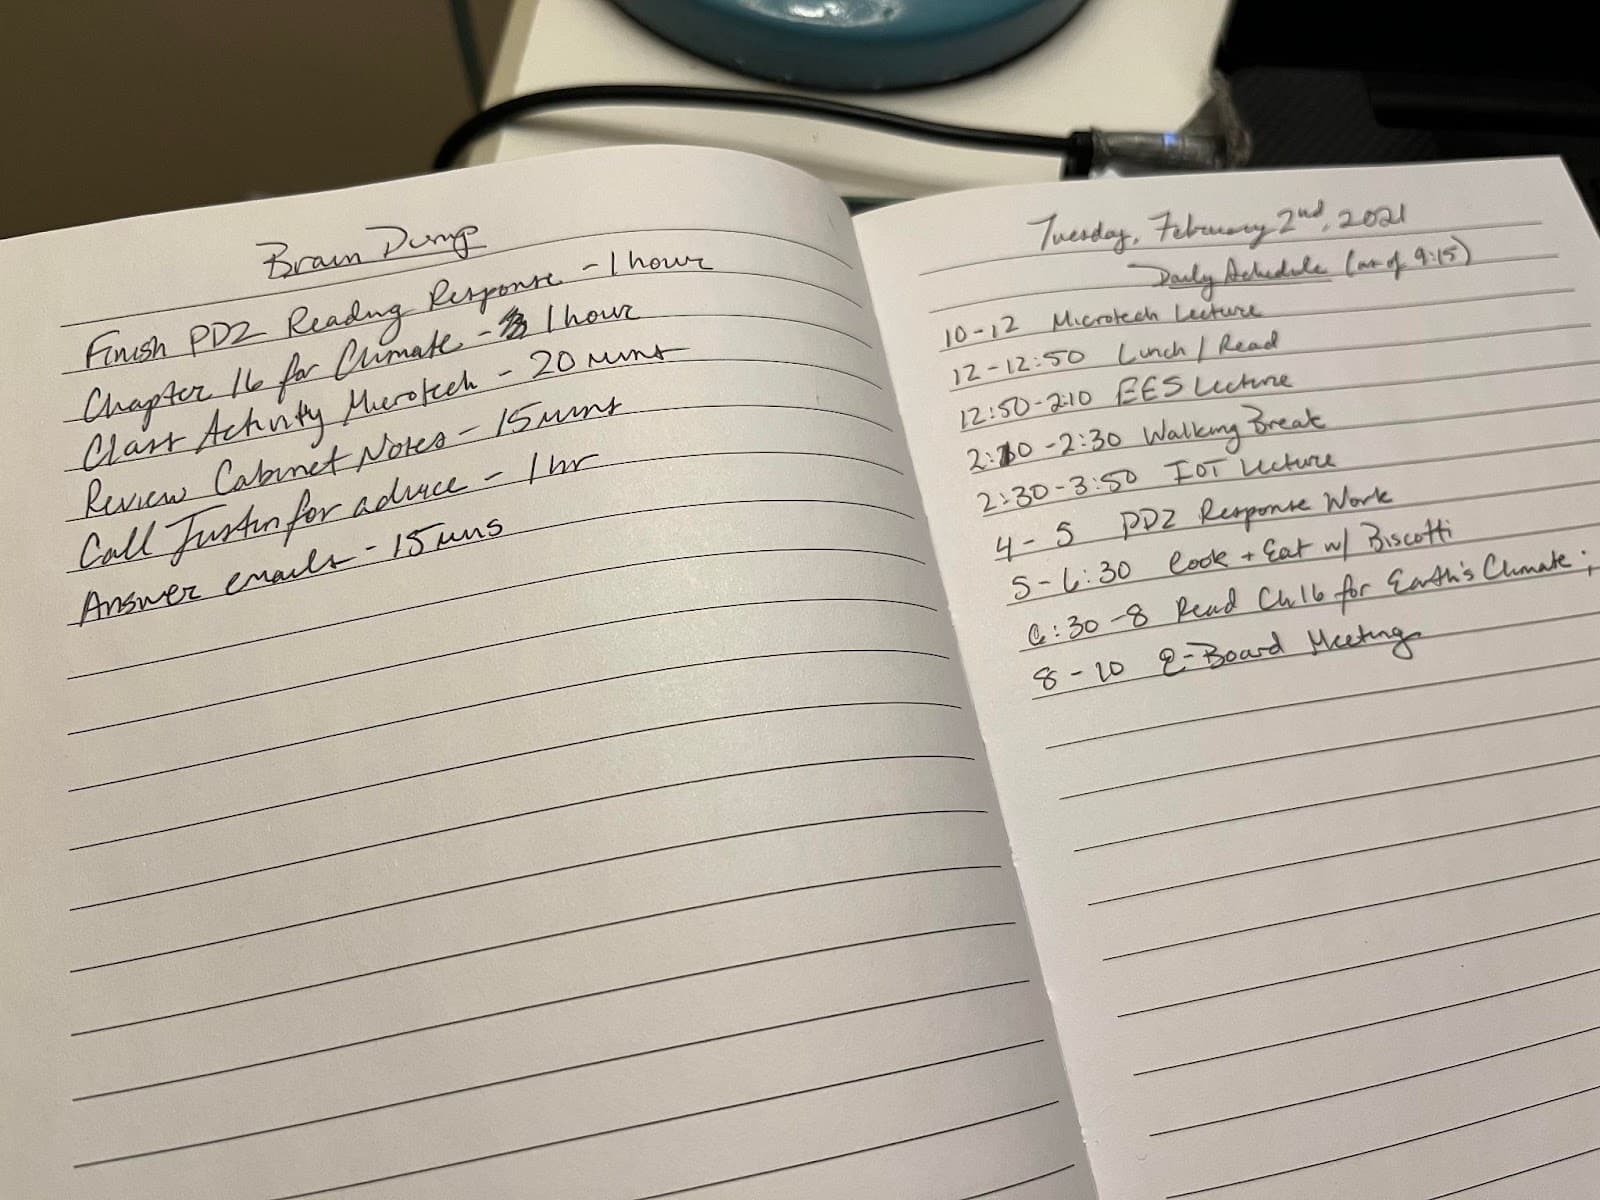 Brain Dump
Finish PD2 Reading Response - 1 hour
Chapter 16 for Climate - 1 hour
Class Activity Microtech - 20 mins
Review Cabinet Notes - 15 mins
Call Justin for advice - 1 hr
Answer emails - 15 mins
Tuesday, February 2nd, 2021
Daily Schedule (as of 9:15)
10-12 Microtech Lecture
12-12:50 Lunch / Read
12:50-2:10 EES Lecture
2:10-2:30 Walking Break
2:30-3:50 IOT Lecture
4-5 PD2 Response Work
5-6:30 Cook + Eat w/ Biscotti
6:30-8 Read Ch 16 for Earth's Climate;
8-10 E-Board Meeting